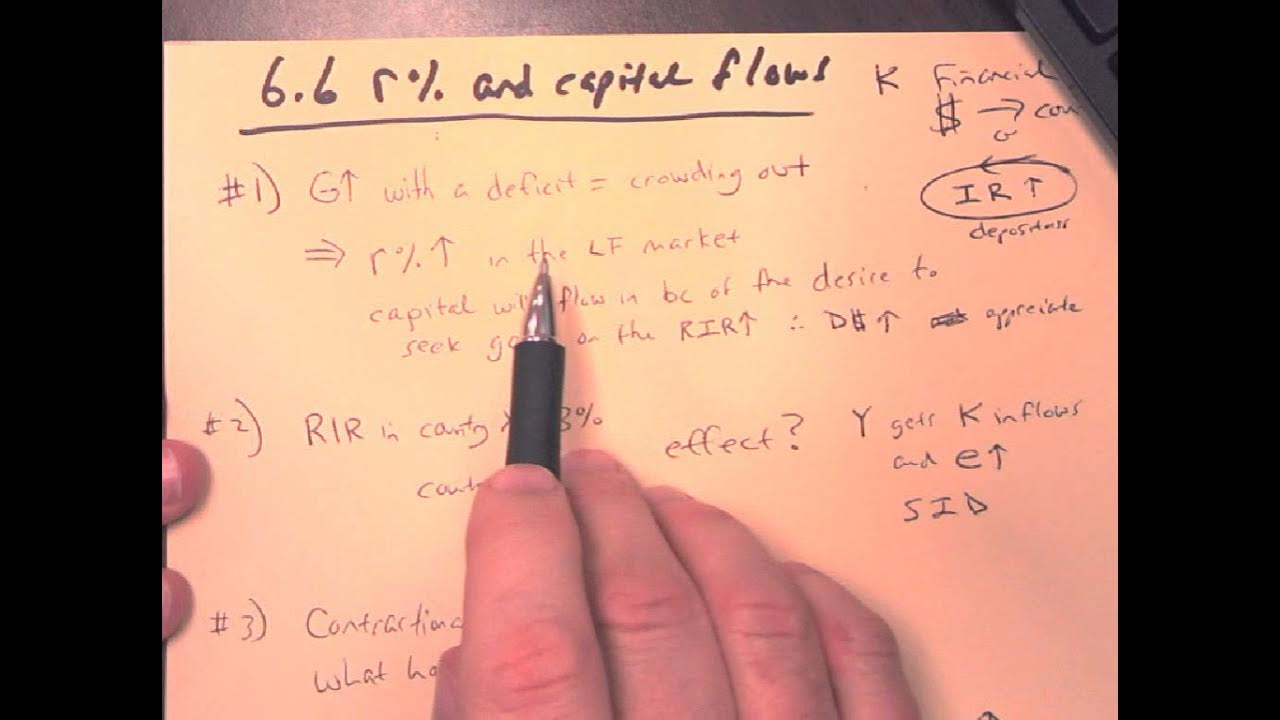 6.6 r% and capital flows
K Financial
$ →
IR↑
depositors
#1) G↑ with a deficit = crowding out
⇒ r%↑ in the LF market
capital will flow in bc of the desire to
seek on the RIR↑ ∴ D$↑ appreciate
#2) RIR in county 3%
effect?
Y gets K inflows
and e↑
SID
#3) Contractiona
what